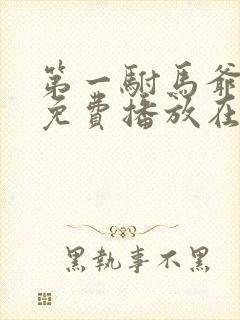 第一駙馬爺
免費播放在
黑執事不黑